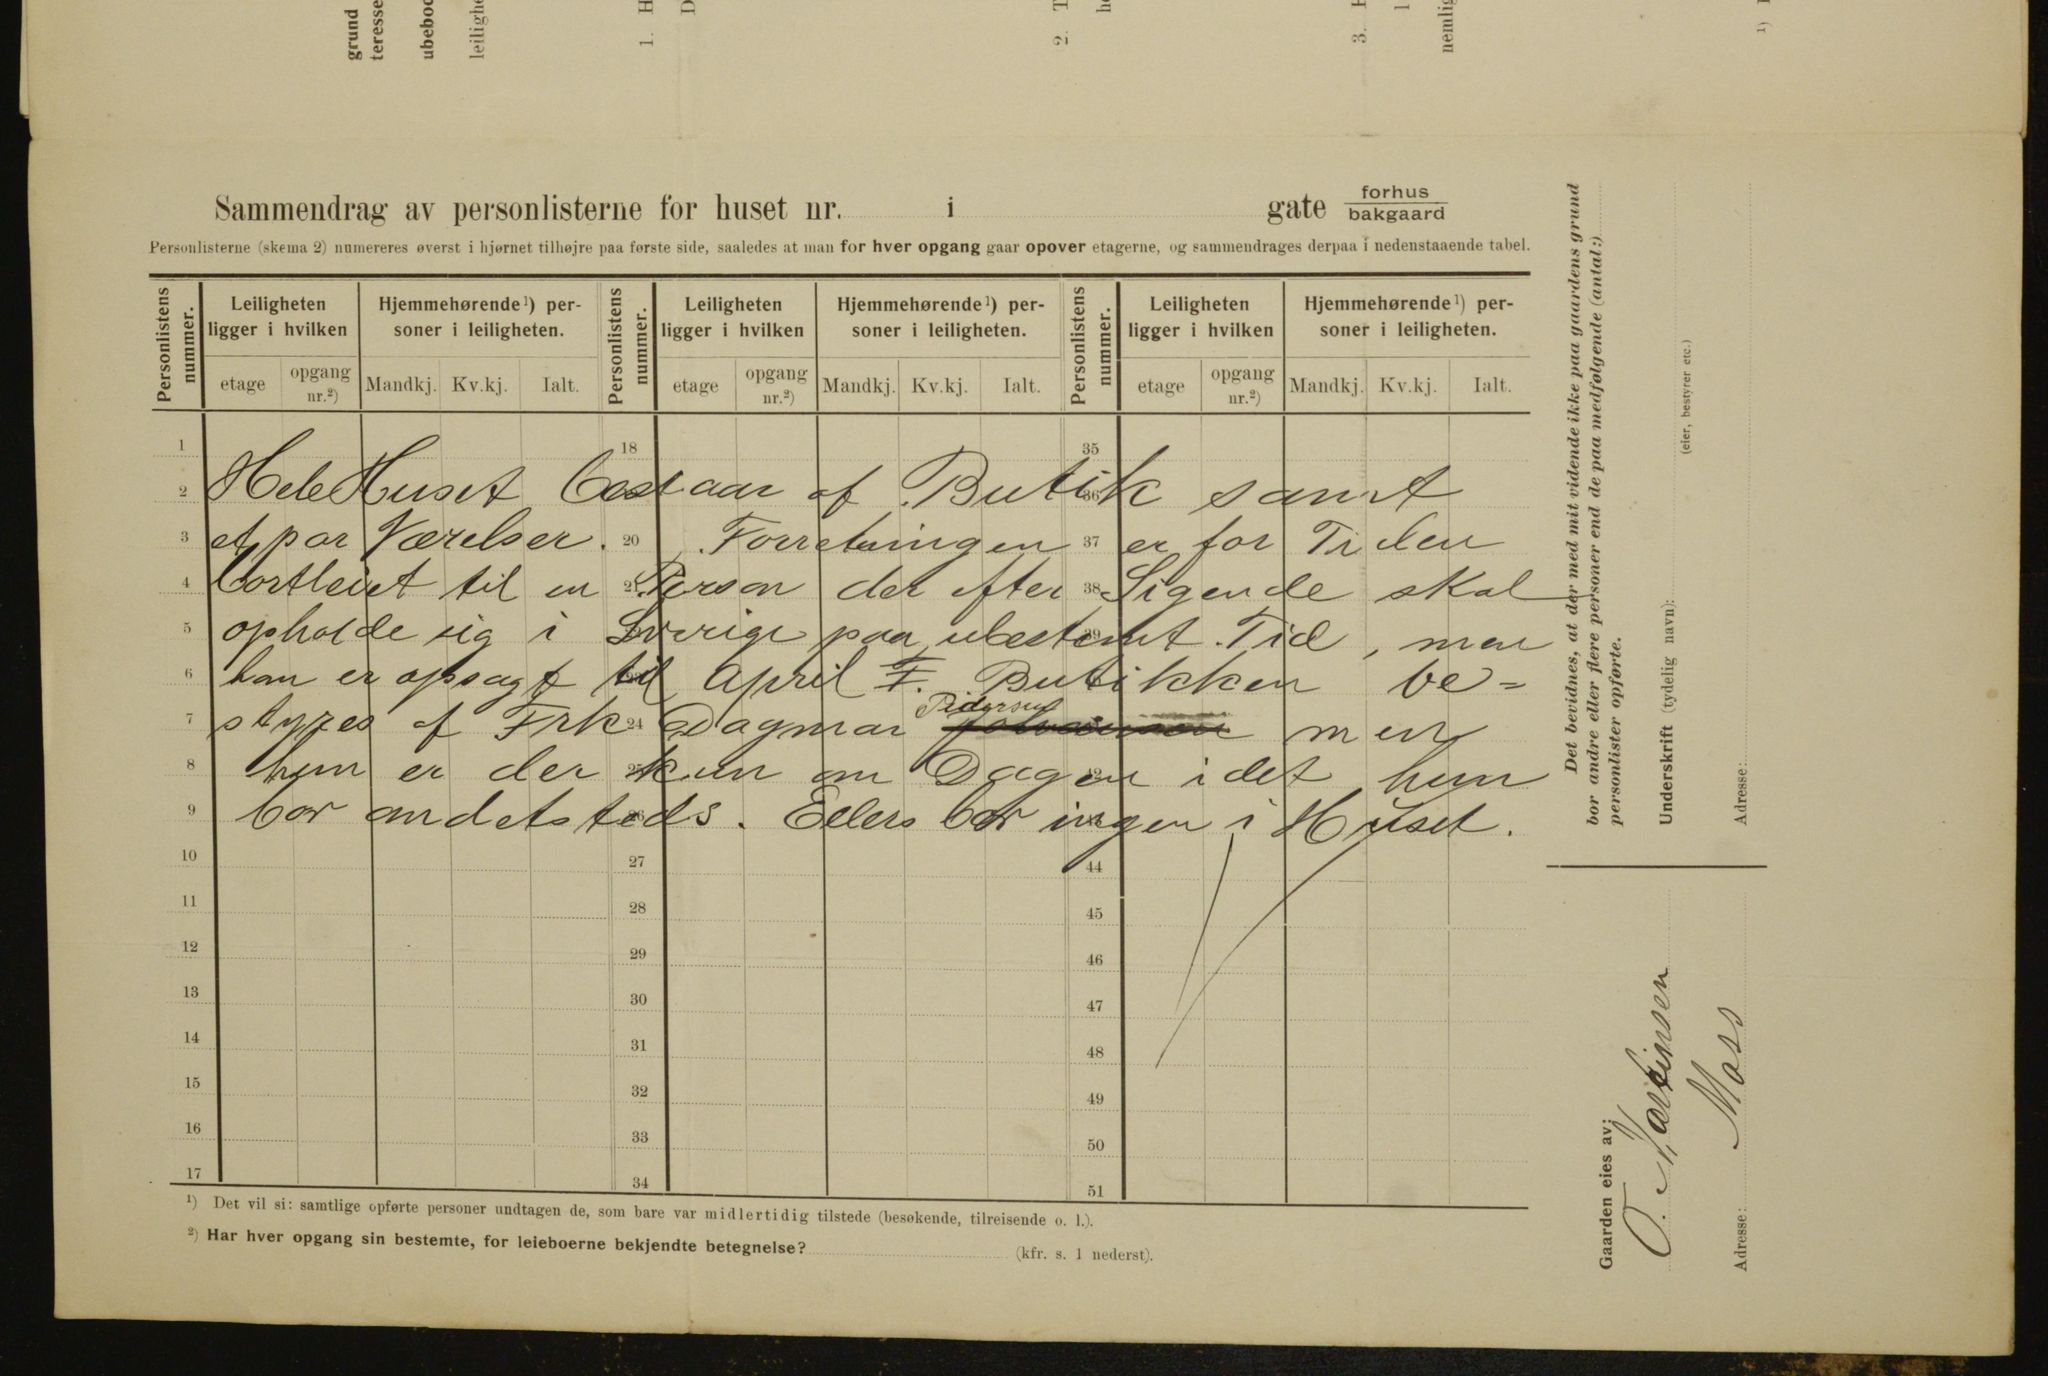 grund
teresse
ubeboe
leilighe
1. H
D
2. T
he
3. F
1
nemlig
1) I
Sammendrag av personlisterne for huset nr. i gate forhus
bakgaard
Personlisterne (skema 2) numereres øverst i hjørnet tilhøjre paa første side, saaledes at man for hver opgang gaar opover etagerne, og sammendrages derpaa i nedenstaaende tabel.
Personlistens nummer. Leiligheten ligger i hvilken Hjemmehørende¹) personer i leiligheten. Personlistens nummer. Leiligheten ligger i hvilken Hjemmehørende¹) personer i leiligheten. Personlistens nummer. Leiligheten ligger i hvilken Hjemmehørende¹) personer i leiligheten.
etage opgang nr.²) Mandkj. Kv.kj. Ialt. etage opgang nr.²) Mandkj. Kv.kj. Ialt. etage opgang nr.²) Mandkj. Kv.kj. Ialt.
1 18 35
2 Hele Huset bestaar af Butik 36 samt
3 et par Værelser. 20 Forretningen 37 er for Tiden
4 bortleiet til en 21 Person der efter 38 Sigende skal
5 opholde sig i Sverige paa ubestemt 39 Tid, men
6 han er opsagt til April F. Butikken be=
7 styres af Frk 24 Dagmar Pedersen men
8 hun er der 25 kun om Dagen 42 idet hun
9 bor andetsteds. 26 Ellers bor ingen i Huset.
10 27 44
11 28 45
12 29 46
13 30 47
14 31 48
15 32 49
16 33 50
17 34 51
¹) Det vil si: samtlige opførte personer undtagen de, som bare var midlertidig tilstede (besøkende, tilreisende o. l.).
²) Har hver opgang sin bestemte, for leieboerne bekjendte betegnelse? (kfr. s. 1 nederst).
Det bevidnes, at der med mit vidende ikke paa gaardens grund
bor andre eller flere personer end de paa medfølgende (antal:)
personlister opførte.
Underskrift (tydelig navn):
(eier, bestyrer etc.)
Adresse:
Gaarden eies av:
O. Martinsen
Adresse: Moss